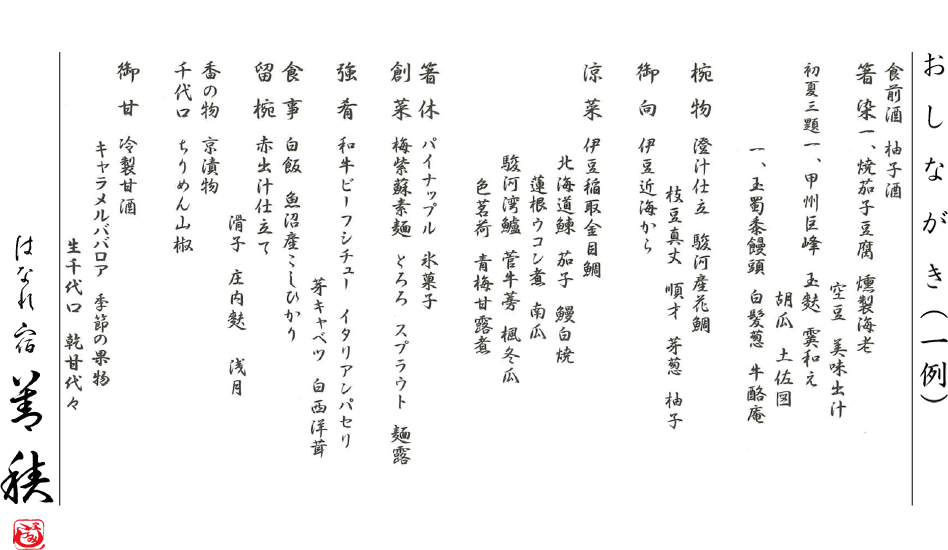 おしながき（一例）
食前酒 柚子酒
箸染 一、焼茄子豆腐 燻製海老
空豆 美味出汁
初夏三題 一、甲州巨峰 玉麩 霙和え
胡瓜 土佐図
一、玉蜀黍饅頭 白髪葱 牛酪庵
椀物 澄汁仕立 駿河産花鯛
枝豆真丈 順才 芽葱 柚子
御向 伊豆近海から
涼菜 伊豆稲取金目鯛
北海道鰊 茄子 鰻白焼
蓮根ウコン煮 南瓜
駿河湾鱸 管牛蒡 楓冬瓜
色茗荷 青梅甘露煮
箸休 パイナップル 氷菓子
創菜 梅紫蘇素麺 とろろ スプラウト 麺露
強肴 和牛ビーフシチュー イタリアンパセリ
芽キャベツ 白西洋茸
食事 白飯 魚沼産こしひかり
留椀 赤出汁仕立て
滑子 庄内麩 浅月
香の物 京漬物
千代口 ちりめん山椒
御甘 冷製甘酒
キャラメルババロア 季節の果物
生千代口 乾甘代々
はなれ宿 善積